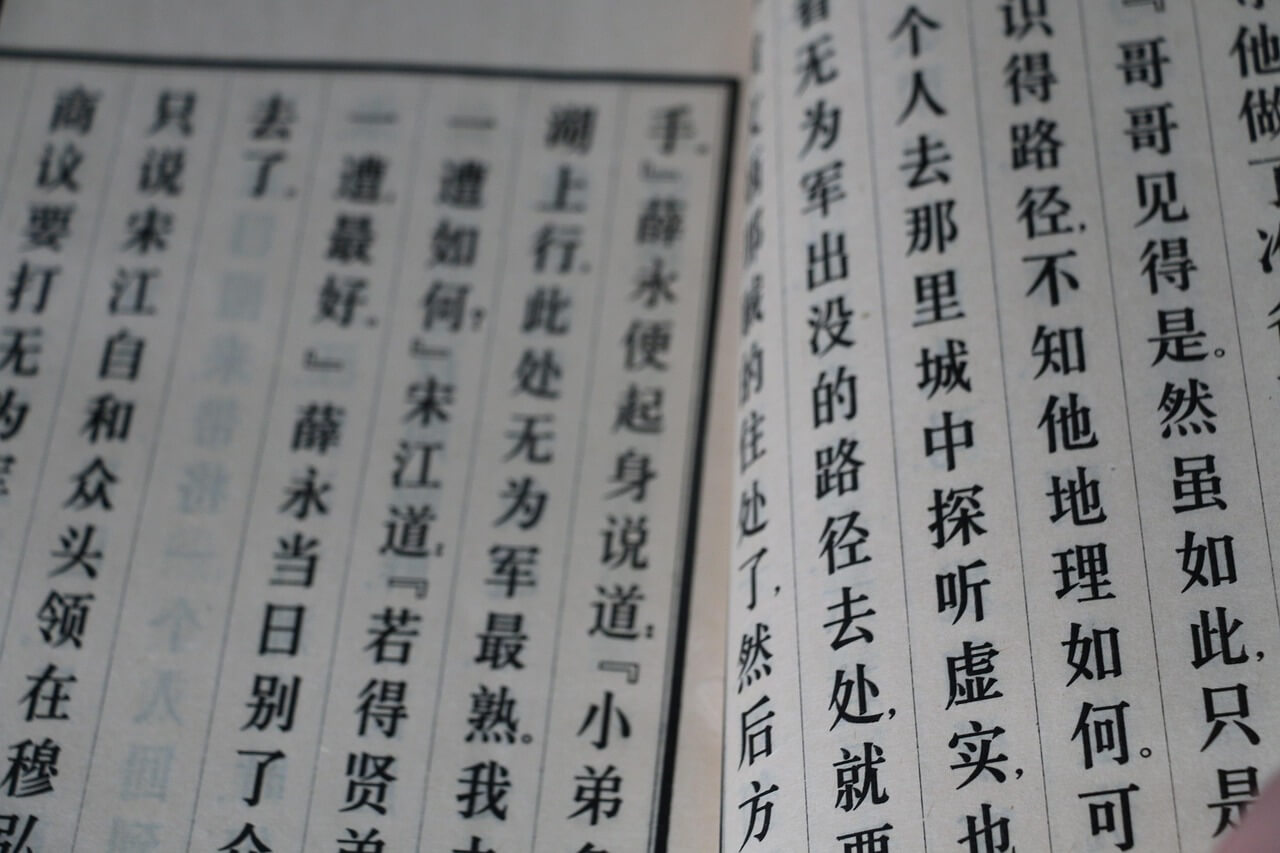 他做了
『哥哥见得是。然虽如此,只是
识得路径,不知他地理如何。可
个人去那里城中探听虚实,也
看无为军出没的路径去处,就要
那贼的住处了,然后方
手。』薛永便起身说道:『小弟
湖上行。此处无为军最熟。我
一遭如何?』宋江道:『若得贤弟
一遭最好。』薛永当日别了众
去了。
只说宋江自和众头领在穆弘
商议要打无为军